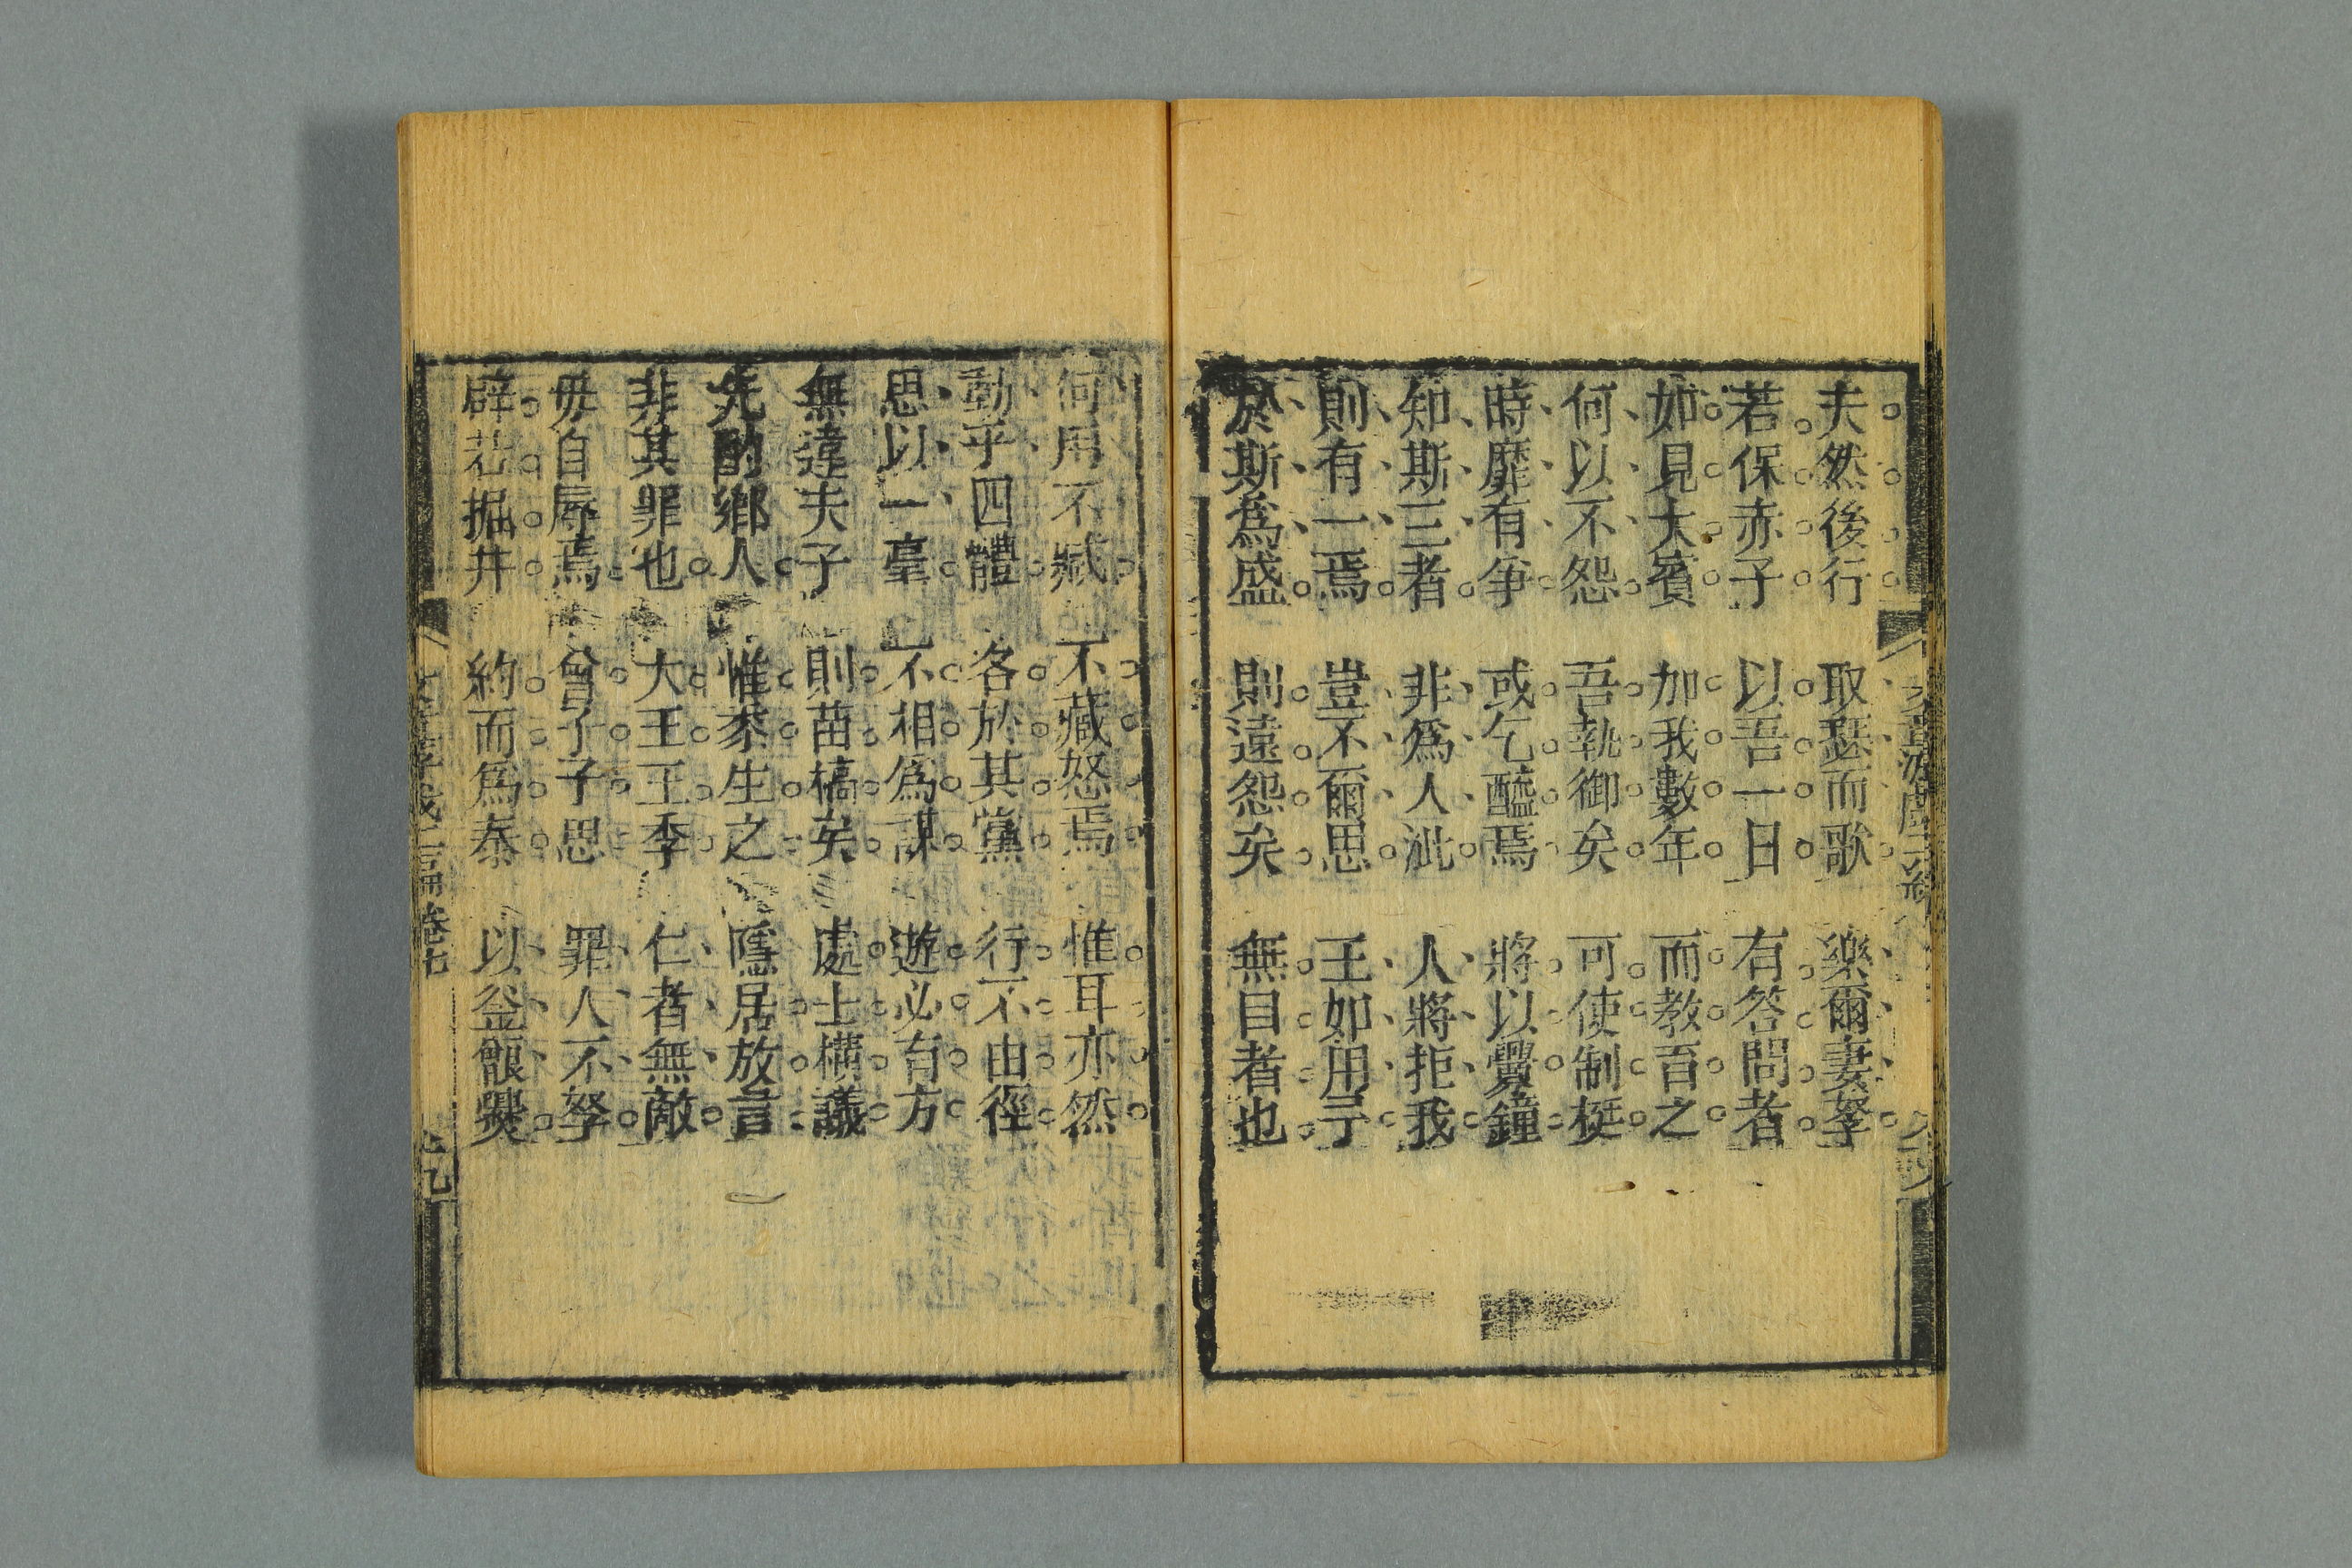 夫然後行 取瑟而歌 樂爾妻孥
若保赤子 以吾一日 有答問者
如見大賓 加我數年 而教百之
何以不怨 吾執御矣 可使制梃
時靡有爭 或乞醯焉 將以釁鐘
知斯三者 非爲人泚 人將拒我
則有一焉 豈不爾思 王如用予
於斯爲盛 則遠怨矣 無目者也
何用不臧 不藏怒焉 惟耳亦然
動乎四體 各於其黨 行不由徑
思以一毫 不相爲謀 遊必有方
無違夫子 則苗槁矣 處士橫議
先酌鄉人 惟黍生之 隱居放言
非其罪也 大王王季 仁者無敵
毋自辱焉 曾子子思 罪人不孥
辟若掘井 約而爲泰 以釜甑爨
卷七
九